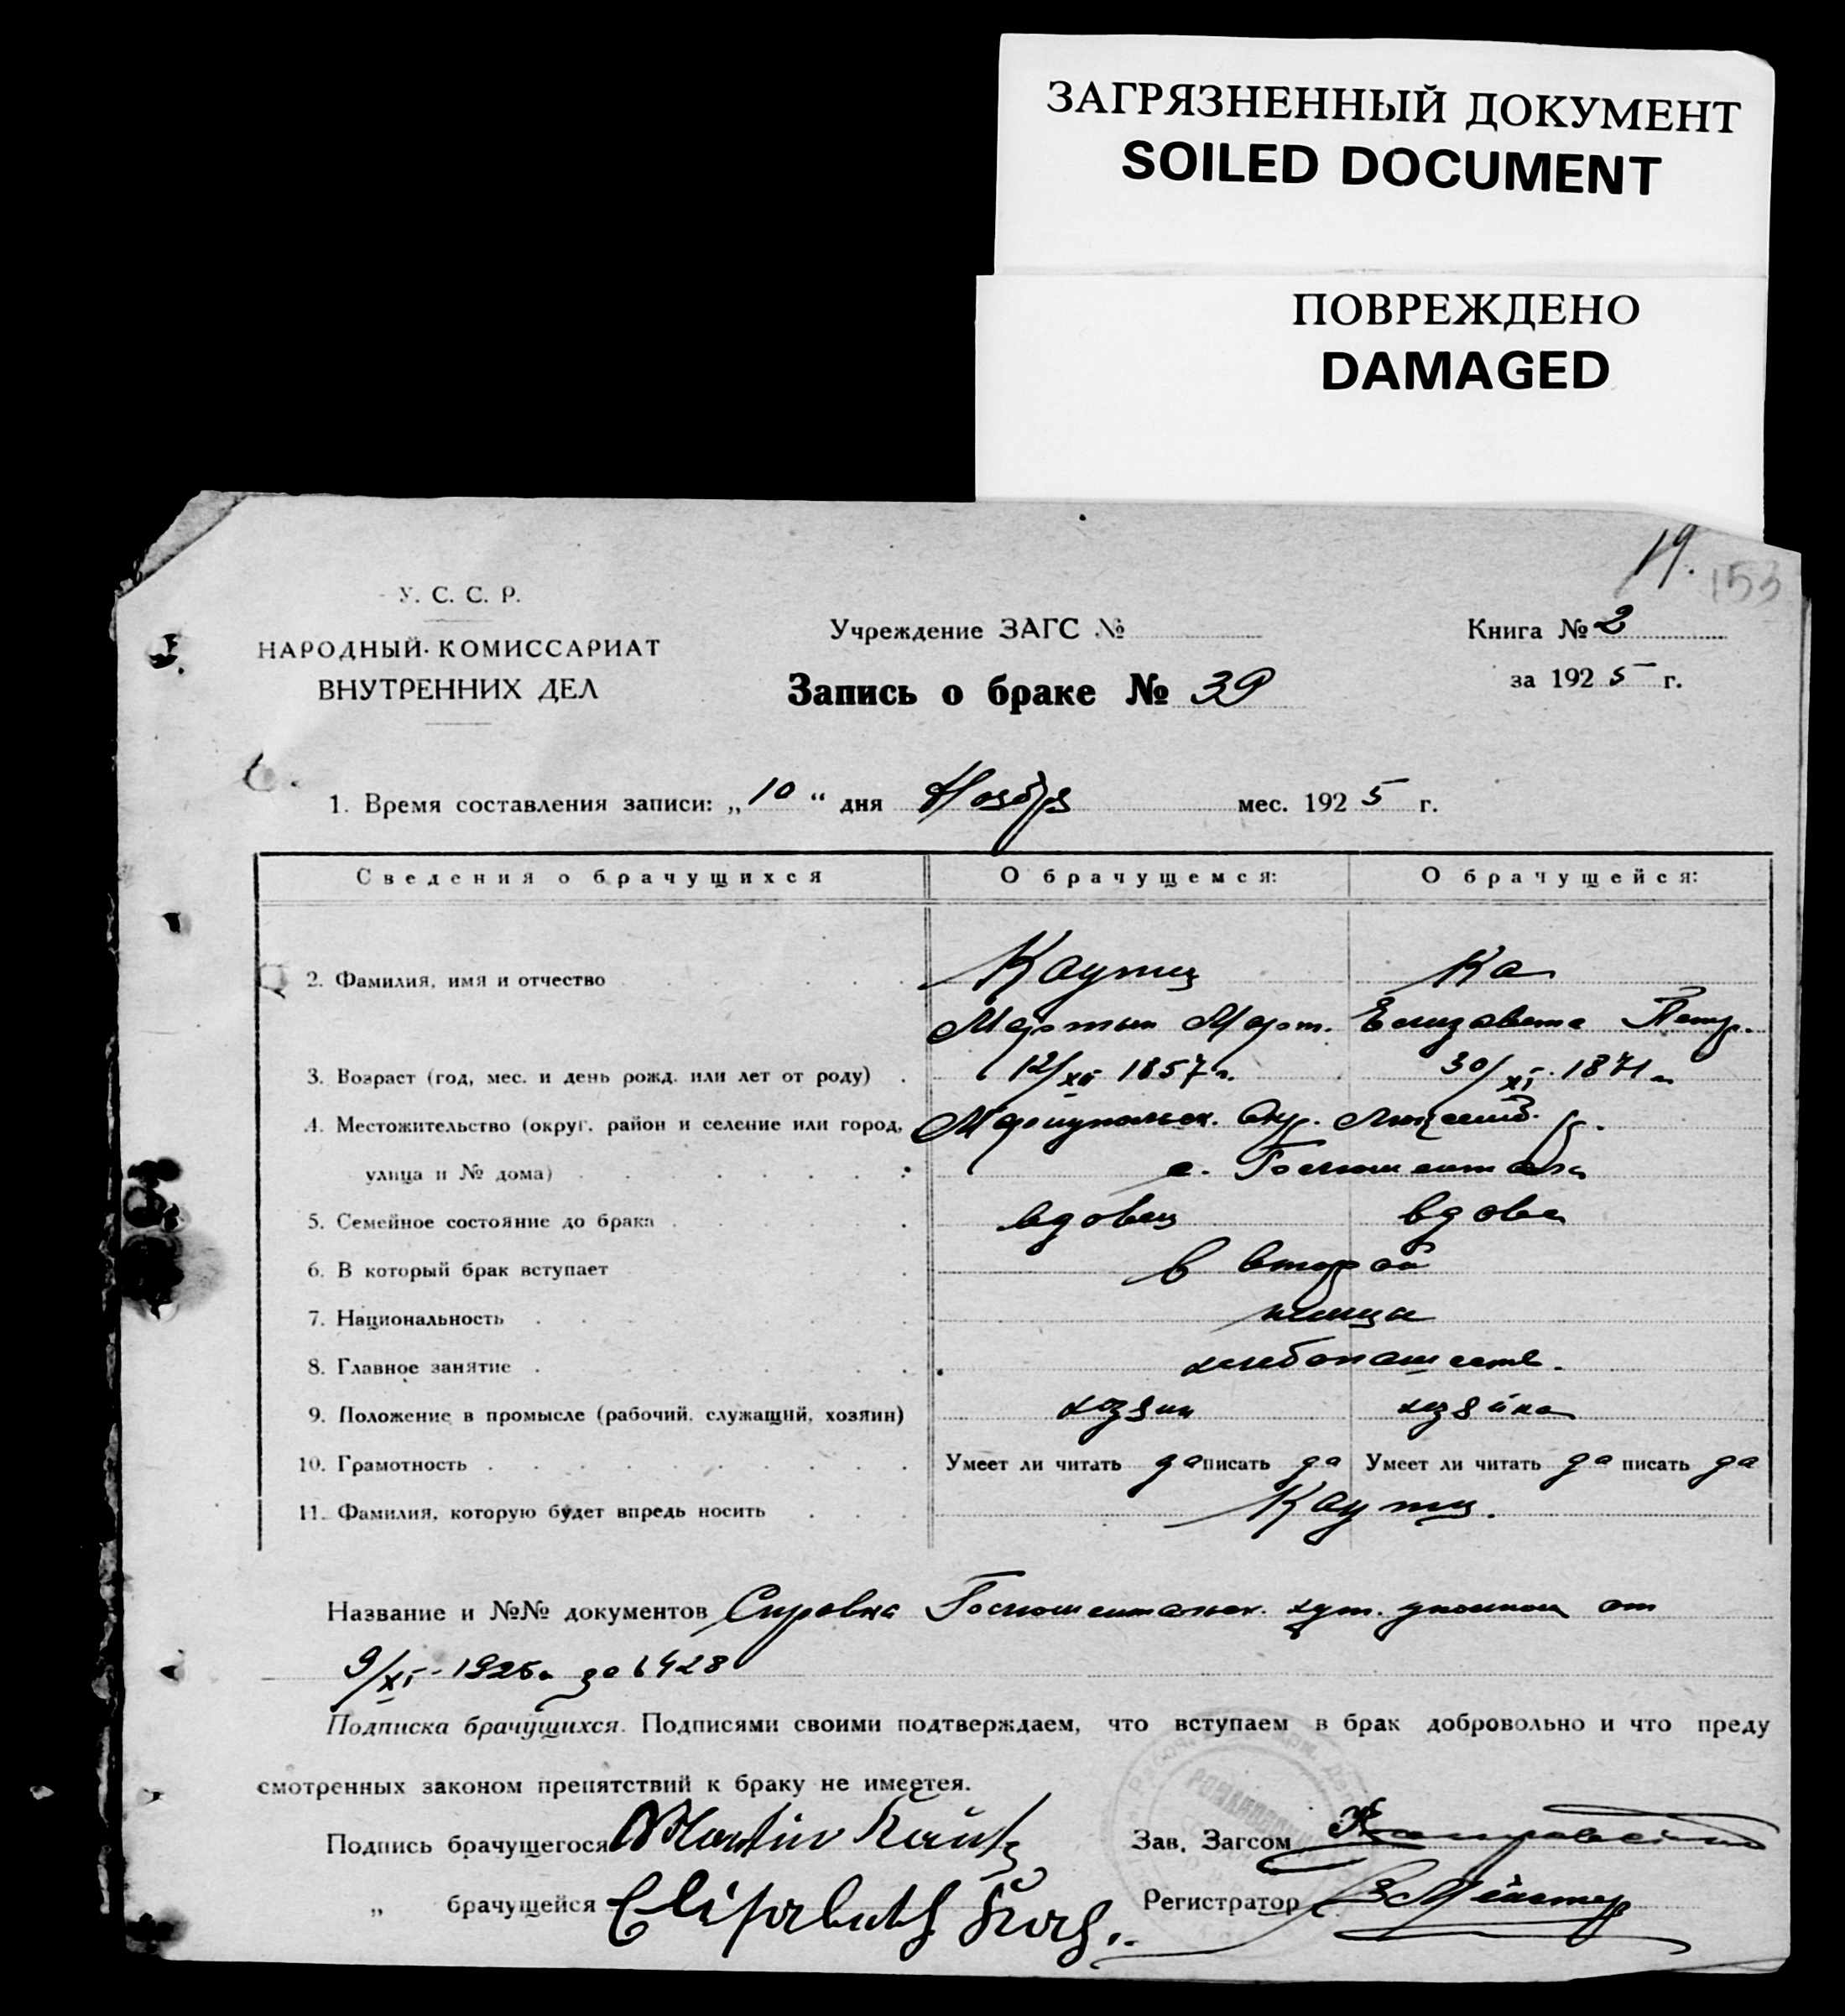 ЗАГРЯЗНЕННЫЙ ДОКУМЕНТ
SOILED DOCUMENT
ПОВРЕЖДЕНО
DAMAGED
19. 153
У. С. С. Р.
НАРОДНЫЙ КОМИССАРИАТ
ВНУТРЕННИХ ДЕЛ
Учреждение ЗАГС №
Запись о браке № 39
Книга № 2
за 1925 г.
1. Время составления записи: „10“ дня Ноября мес. 1925 г.
Сведения о брачущихся О брачущемся: О брачущейся:
2. Фамилия, имя и отчество Каутц Ка
Мартын Март. Елизавета Петр.
3. Возраст (год, мес. и день рожд. или лет от роду) 12/XII 1857 г. 30/XI. 1871 г.
4. Местожительство (округ, район и селение или город, Мариупольск. Окр. Люксемб. р.
улица и № дома) с.
5. Семейное состояние до брака вдовец вдова
6. В который брак вступает в второй
7. Национальность немцы
8. Главное занятие хлебопашеств.
9. Положение в промысле (рабочий, служащий, хозяин) хозяин хозяйка
10. Грамотность Умеет ли читать да писать да Умеет ли читать да писать да
11. Фамилия, которую будет впредь носить Каутц.
Название и №№ документов Справка от
9/XI - 1925 г. за 6428
Подписка брачущихся. Подписями своими подтверждаем, что вступаем в брак добровольно и что преду
смотренных законом препятствий к браку не имеется.
Подпись брачущегося Martin Kautz Зав. Загсом
„ брачущейся Elisabeth Koch. Регистратор